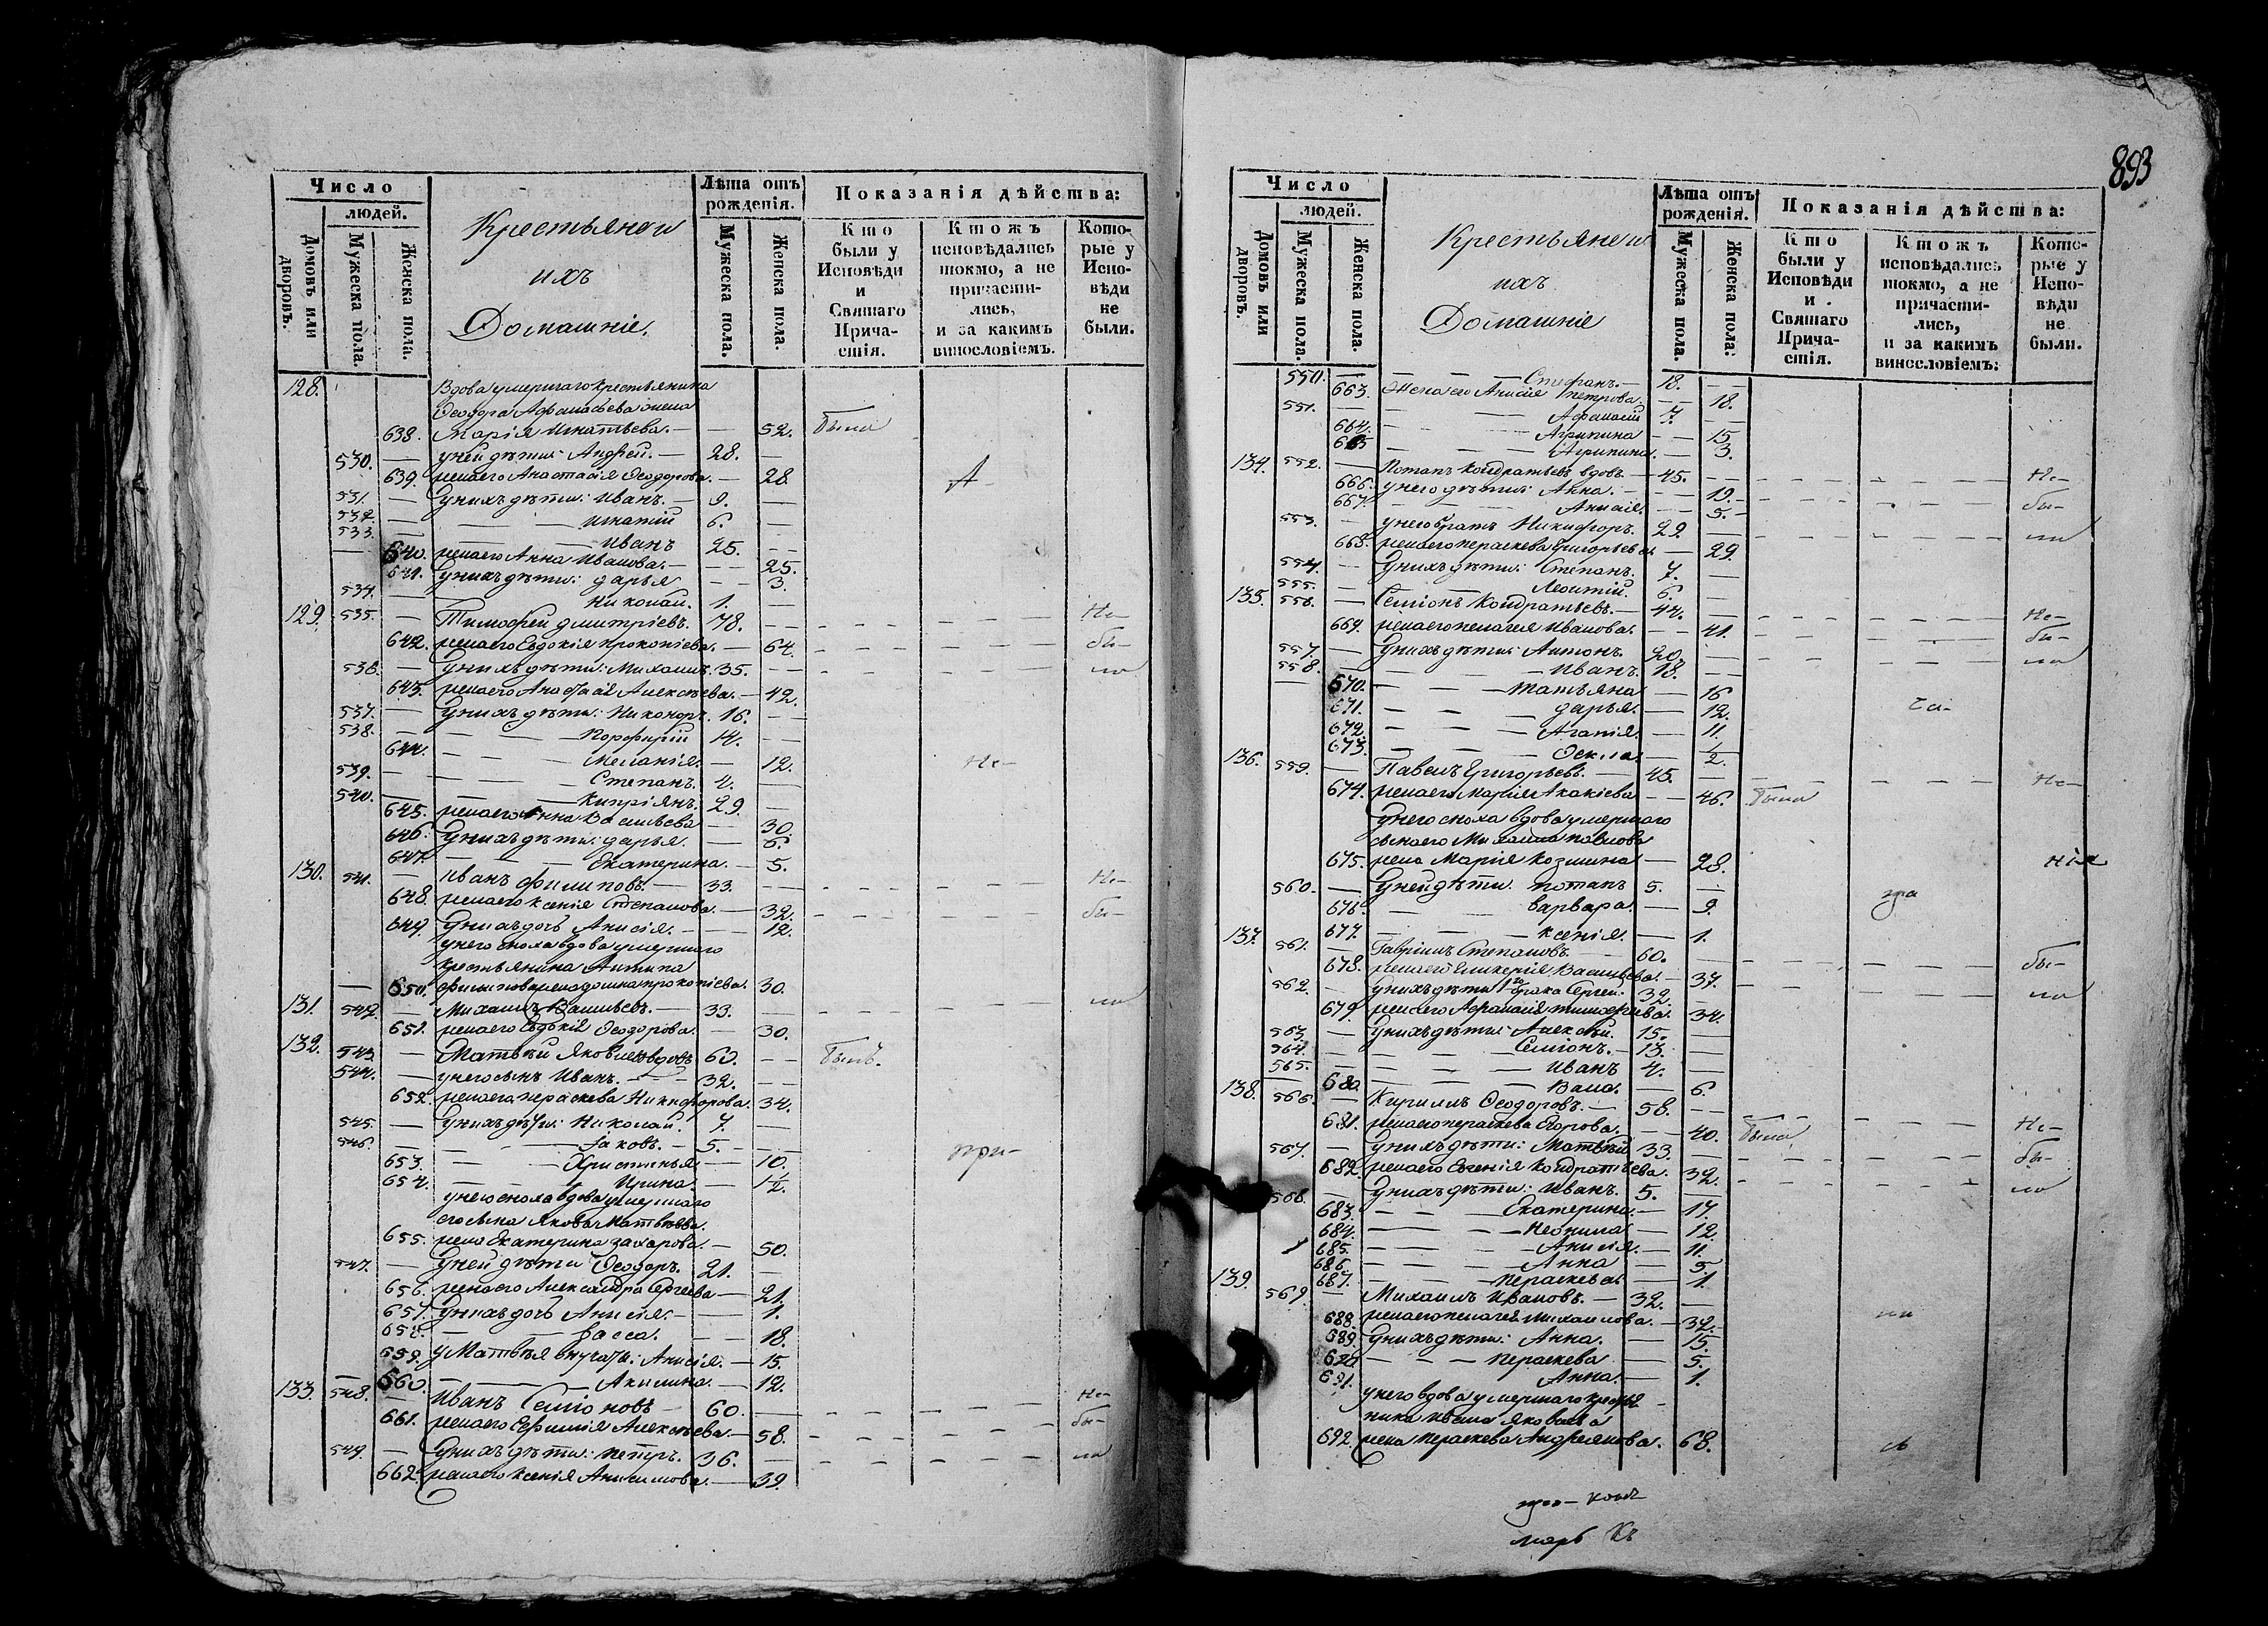 893
Число
людей.
Домовъ или дворовъ.
Мужеска пола.
Женска пола.
Крестьяне и
ихъ
Домашніе,
Лѣта отъ рожденія.
Мужеска пола.
Женска пола.
Показанія дѣйства:
Кто были у Исповѣди и Святаго Прича-стія.
Ктожъ исповѣдались токмо, а не причасти-лись, и за какимъ винословіемъ.
Кото-рые у Испо-вѣди не были.
128. Вдова умершаго крестьянина
Ѳеодора Афанасьева жена
638. Марія Игнатьева. — 52. Была
530. — у ней дѣти: Андрей. — 28. —
639. жена его Анастасія Ѳеодорова. — 28
531. — у нихъ дѣти: Иванъ. — 9. —
532. — Игнатій 6. —
533. — Иванъ 25. —
640. жена его Анна Иванова. — 25.
641. у нихъ дѣти: Дарья — 3.
534. — Николай. 1. —
129. 535. — Тимофей Дмитріевъ. 78. — Не-
642. жена его Евдокія Прокопіева. — 64. бы-
536. — у нихъ дѣти: Михаилъ. 35. — ли
643. жена его Анастасія Алексѣева. — 42.
537. — у нихъ дѣти: Никоноръ. 16. —
538. — Порфирій 14. —
644. — Меланія. — 12. Не-
539. — Степанъ. 4. —
540. — Кипріянъ. 29. —
645. жена его Анна Васильева — 30.
646. у нихъ дѣти: Дарья. — 6.
647. — Екатерина. — 5.
130. 541. — Иванъ Филиповъ — 33. — Не-
648. жена его Ксенія Степанова. — 32. бы-
649. у нихъ дочь Анисія. — 12.
у него сноха вдова умершаго
крестьянина Антипа
650. Филипова жена Домна Прокопіева. 30.
131. 542. — Михаилъ Васильевъ. — 33. — ли
651. жена его Евдокія Ѳеодорова. — 30.
132. 543. — Матвѣй Яковлевъ вдовъ 60. — Былъ.
544. — у него сынъ Иванъ. — 32. —
652. жена его Параскева Никифорова. 34.
545. — у нихъ дѣти: Николай. 7. —
546. — Іаковъ. — 5. — при-
653. — Христинья — 10.
654. — Ирина. — 1½.
у него сноха вдова умершаго
его сына Якова Матвѣева.
655. жена Екатерина Захарова. — 50.
547. — у ней дѣти Ѳеодоръ. 21. —
656. жена его Александра Сергеева — 21.
657. у нихъ дочь Анисія. — 1.
658. — Васса. — 18.
659. у Матвѣя внучаты: Анисія. — 15.
660. — Акилина. — 12.
133. 548. — Иванъ Семіоновъ — 60. — Не-
661. жена его Ефимія Алексѣева. — 58. бы-
549. — у нихъ дѣти: Петръ. 36. — ли
662. жена его Ксенія Анисимова. — 39.
Число
людей.
Домовъ или дворовъ.
Мужеска пола.
Женска пола.
Крестьяне и
ихъ
Домашніе
Лѣта отъ рожденія.
Мужеска пола.
Женска пола.
Показанія дѣйства:
Кто были у Исповѣди и Святаго Прича-стія.
Ктожъ исповѣдались токмо, а не причасти-лись, и за какимъ винословіемъ:
Кото-рые у Испо-вѣди не были.
550. — Стефанъ. — 18. —
663. Жена его Анисія Петрова. — 18.
551. — Афанасій 7. —
664. — Агрипина — 15
665 — Агрипина. — 3.
134. 552. — Потапъ Кондратьевъ вдовъ. — 45. — Не-
666. у него дѣти: Анна. — 19.
667. — Анисія. — 5. бы-
553. — у него братъ Никифоръ. 29. — ли
668. жена его Параскева Григорьева. — 29.
554. — у нихъ дѣти: Степанъ. 7. —
555. — Леонтій. 6. —
135. 556. — Семіонъ Кондратьевъ. — 44. — Не-
669. жена его Пелагея Иванова. — 41. бы-
557. — у нихъ дѣти: Антонъ. 20. — ли
558. — Иванъ. 18. —
670. — Татьяна — 16
671. — Дарья. — 12. ча-
672. — Агапія. — 11.
673. — Ѳекла. — ½.
136. 559. — Павелъ Григорьевъ. — 45. — Не-
674. жена его Марія Акакіева — 46. Была
у него сноха вдова умершаго
сына его Михаила Павлова
675. жена Марія Козмина — 28.
560. — у ней дѣти: Потапъ 5. —
676. — Варвара. — 9.
677. — Ксенія. — 1.
137. 561. — Гавріилъ Степановъ. — 60. — бы-
678. жена его Гликерія Васильева. — 37.
562. — у нихъ дѣти 1го брака Сергей. 32. — ли
679. жена его Афанасія Тимофеева. 34.
563. — у нихъ дѣти: Алексѣй. 15. —
564. — Семіонъ. — 13. —
565. — Иванъ 4. —
680. — Васса. — 6.
138. 566. — Кириллъ Ѳеодоровъ. — 58. —
681. жена его Параскева Егорова. — 40. Была Не-
567. — у нихъ дѣти: Матвѣй 33. — бы-
682. жена его Евгенія Кондратьева. 32.
568. — у нихъ дѣти: Иванъ. 5. — ли
683. — Екатерина. — 17.
684. — Неонила — 12.
685. — Анисія. — 11.
686. — Анна — 5.
687. — Параскева. — 1.
139. 569. — Михаилъ Ивановъ. — 32. —
688. жена его Пелагея Михаилова. — 32.
689. у нихъ дѣти: Анна. — 15.
690 — Параскева — 5.
691. — Анна. — 1.
у него вдова умершаго кресть-
янина Ивана Яковлева
692. жена Параскева Андреянова. 68.